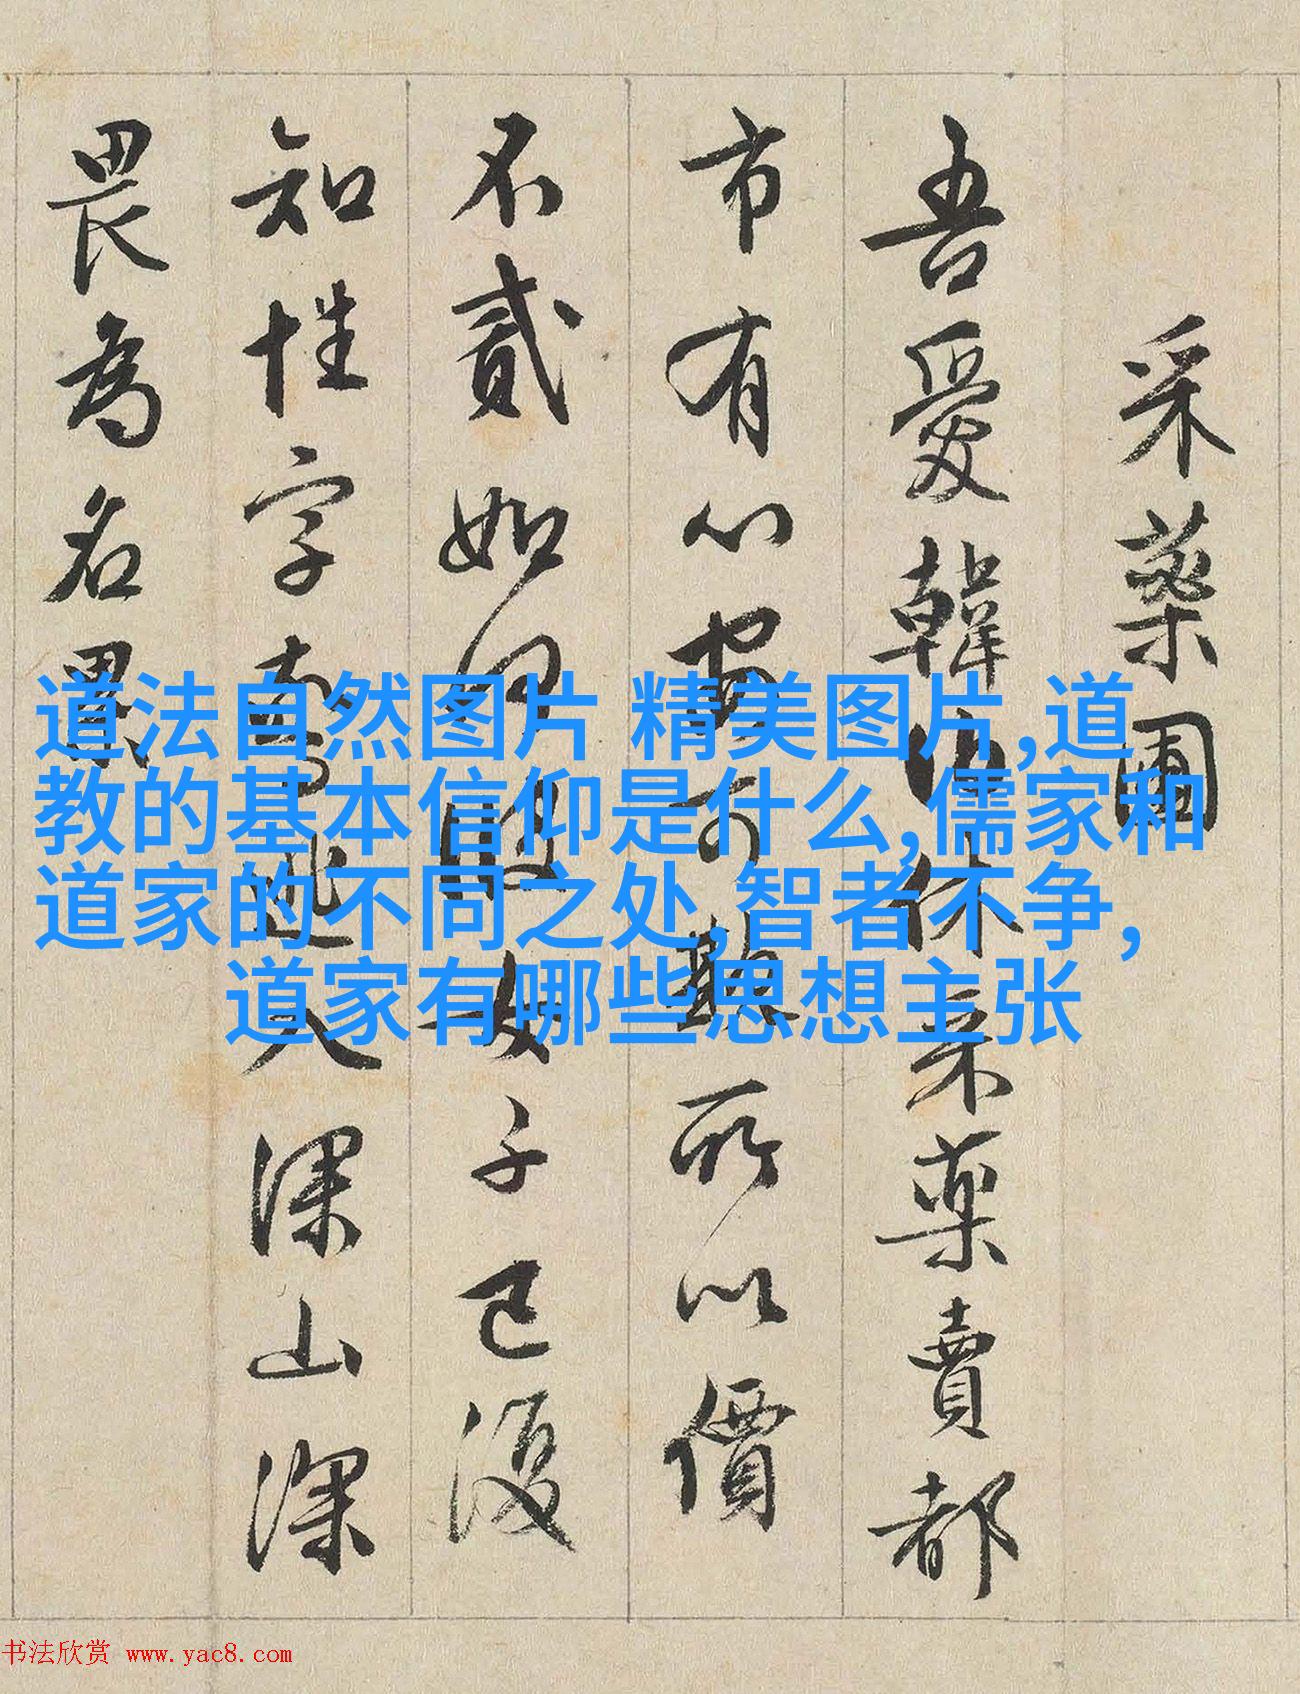 采藥圃
吾愛韓伯休采藥賣都
市有心可欺所以價
不貳如何彼女子已復
知性字逃入深山深
畏為名累
道法自然图片 精美图片,道
教的基本信仰是什么,儒家和
道家的不同之处,智者不争,
道家有哪些思想主张
书法欣赏 www.yac8.com